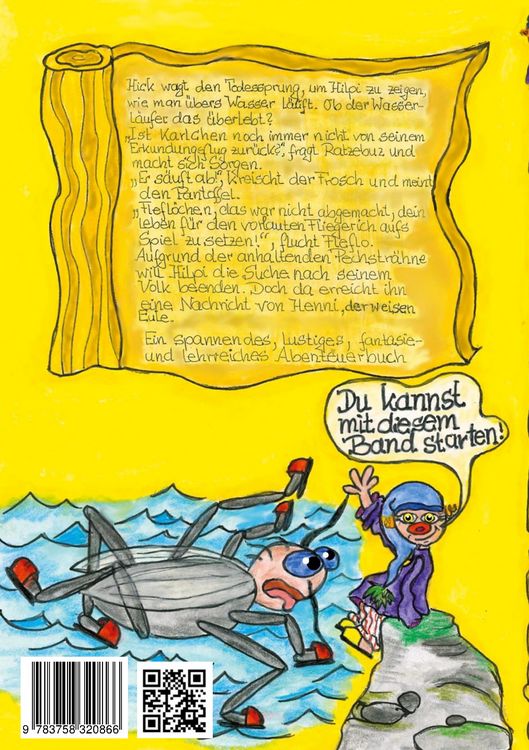 Hick wagt den Todessprung, um Hilpi zu zeigen,
wie man übers Wasser läuft. Ob der Wasser-
läufer das überlebt?
„Ist Karlchen noch immer nicht von seinem
Erkundungsflug zurück?", fragt Ratzebuz und
macht sich Sorgen.
„Er säuft ab", kreischt der Frosch und meint
den Pantoffel.
„Fleflöchen, das war nicht abgemacht, dein
leben für den vorlauten Fliegerich aufs
Spiel zu setzen!", flucht Fleflo.
Aufgrund der anhaltenden Pechsträhne
will Hilpi die Suche nach seinem
Volk beenden. Doch da erreicht ihn
eine Nachricht von Henni, der weisen
Eule.
Ein spannendes, lustiges, fantasie-
und lehrreiches Abenteuerbuch
Du kannst
mit diesem
Band starten!
9 783758 320866